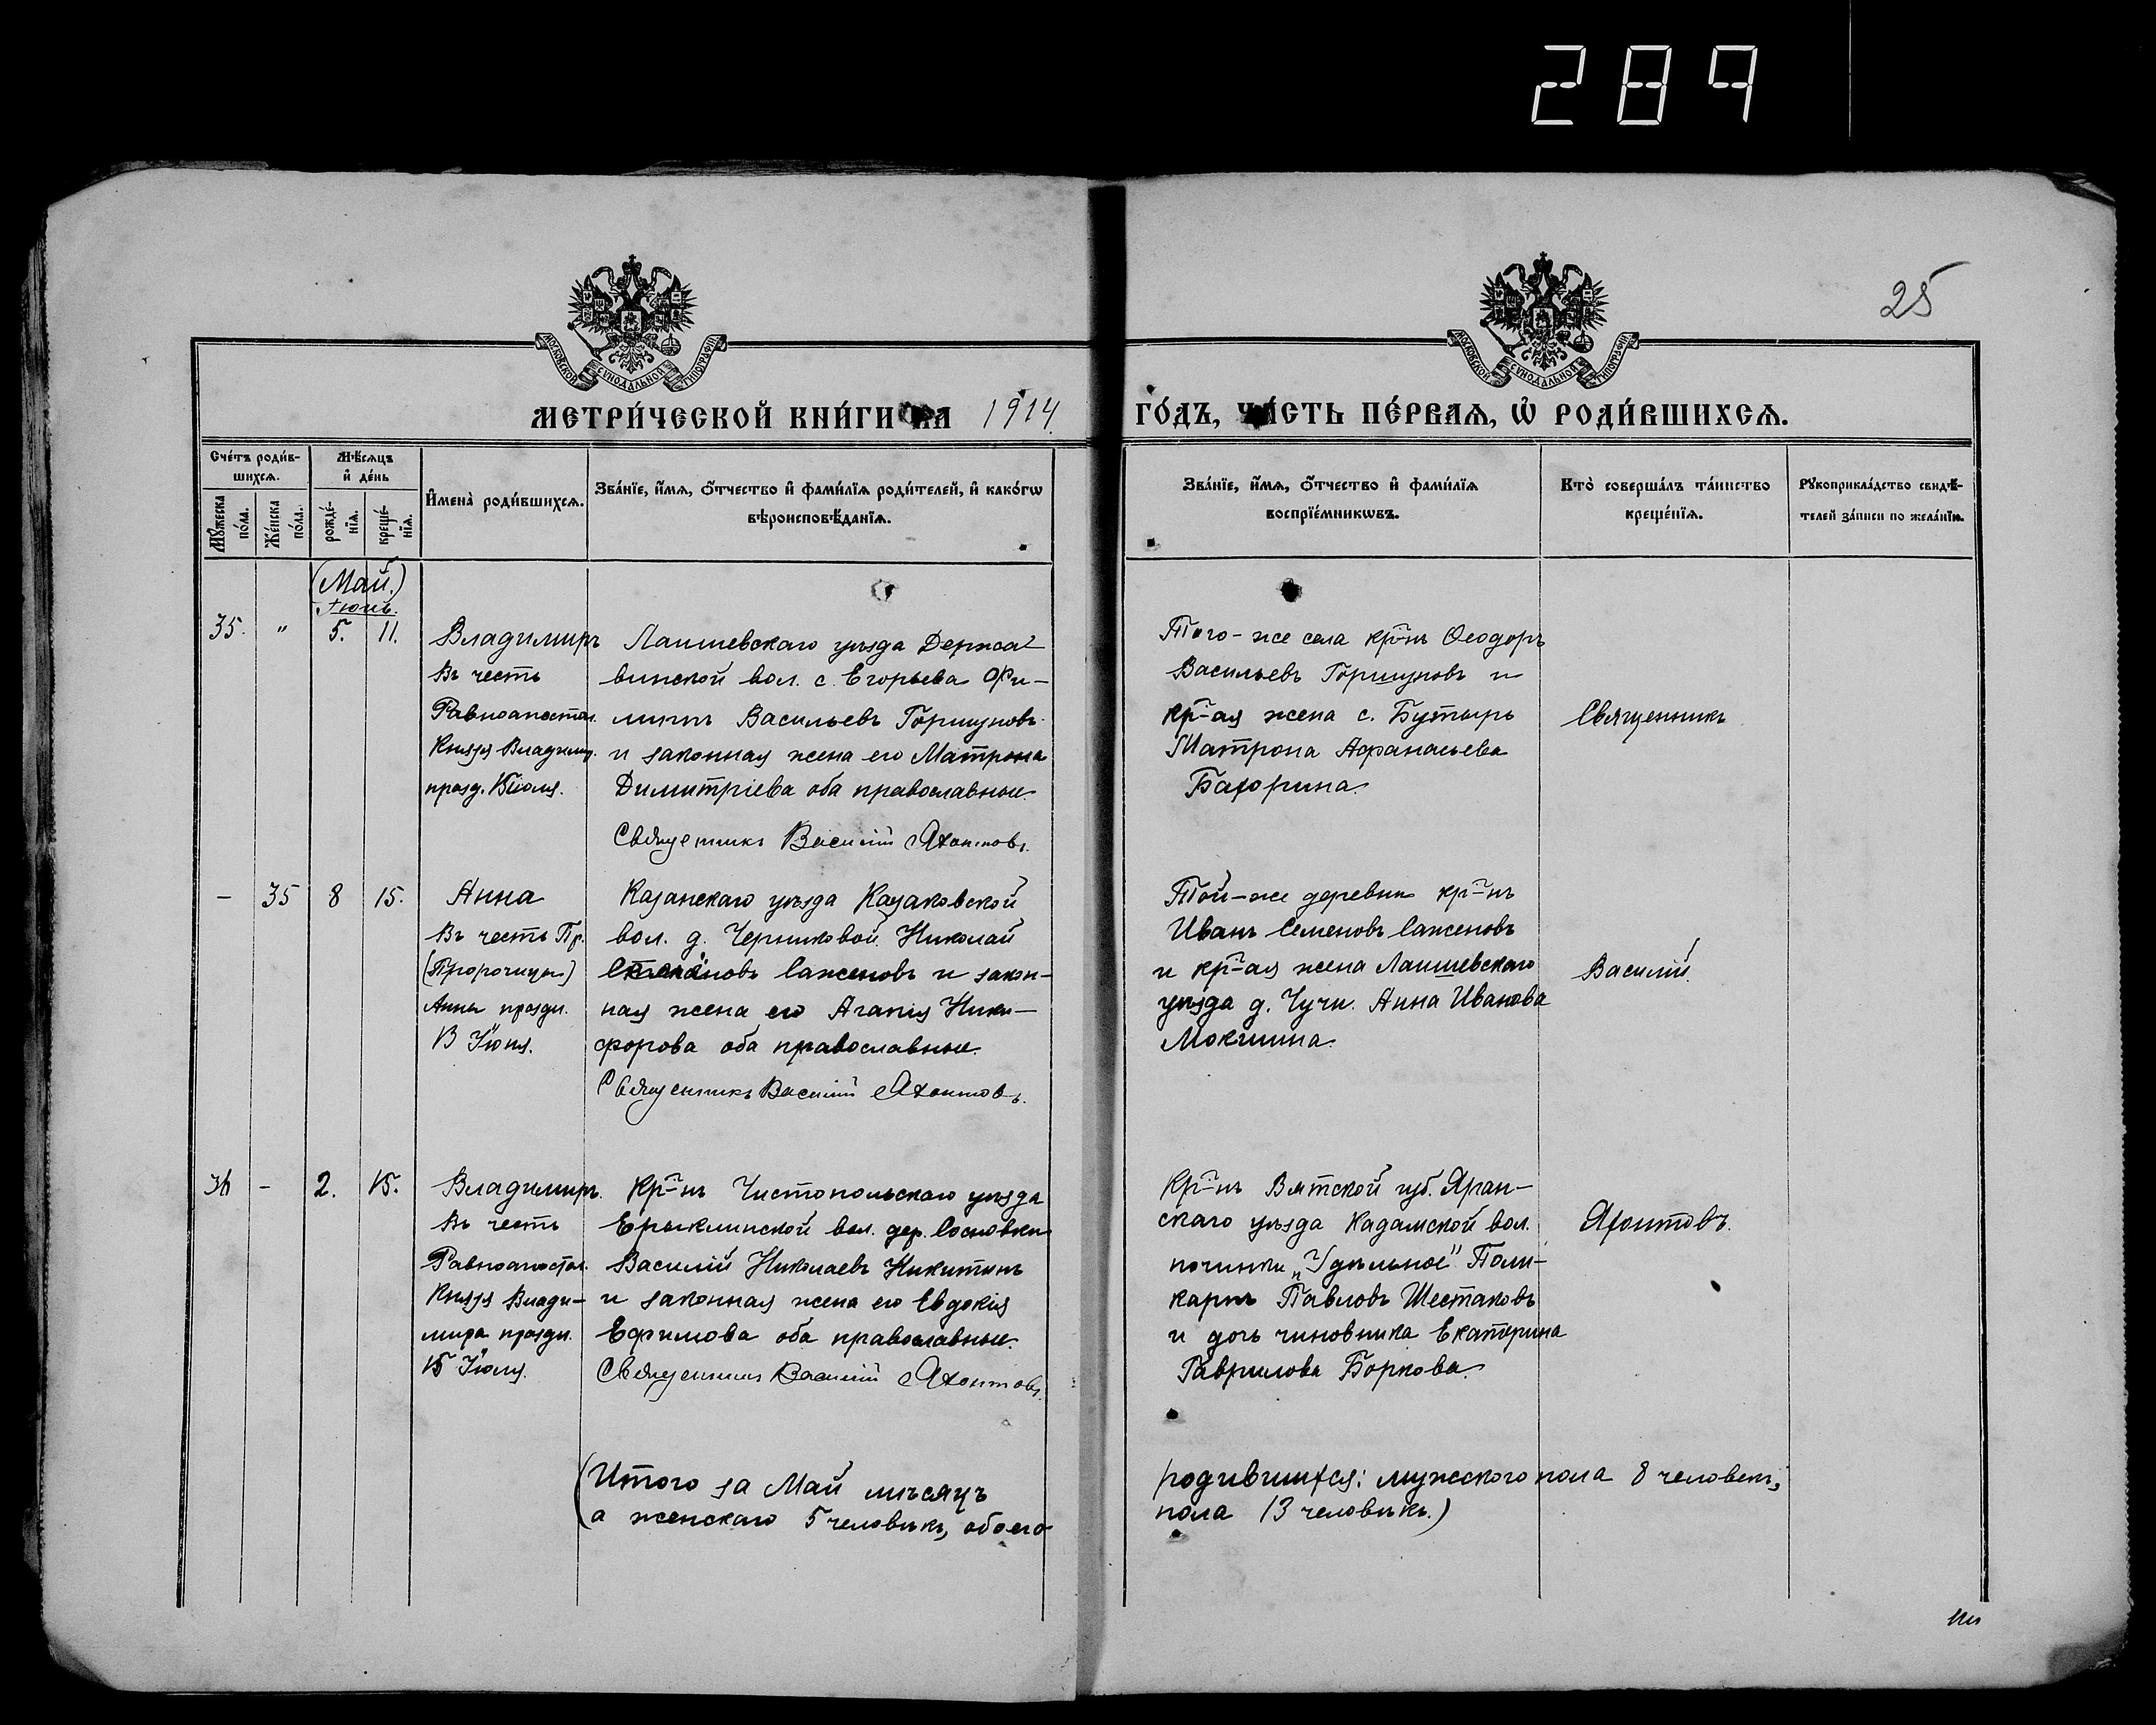 289
25
МОСКОВСКОЙ СѴНОДАЛЬНОЙ ТИПОГРАФІИ
МОСКОВСКОЙ СѴНОДАЛЬНОЙ ТИПОГРАФІИ
МЕТРИ́ЧЕСКОЙ КНИ́ГИ НА 1914
ГО́ДЪ, ЧА́СТЬ ПЕ́РВАѦ, Ѡ҆ РОДИ́ВШИХСѦ.
Сче́тъ роди́в-
шихсѧ.
Мѣ́сѧцъ
и҆ де́нь
Мꙋ́жеска
по́ла.
Же́нска
по́ла.
рожде́-
нїѧ.
креще́-
нїѧ.
И҆мена̀ роди́вшихсѧ.
Зва́нїе, и҆́мѧ, ѻ҆́тчество и҆ фами́лїѧ роди́телей, и҆ како́гѡ
вѣроисповѣ́данїѧ.
Зва́нїе, и҆́мѧ, ѻ҆́тчество и҆ фами́лїѧ
воспрїе́мникѡвъ.
Кто̀ соверша́лъ та́инство
креще́нїѧ.
Рꙋкоприкла́дство свидѣ́-
телей за́писи по жела́нїю.
(Май.)
Іюнь.
35. " 5. 11.
Владимиръ
Въ честь
Равноапостол.
Князя Владимир.
празд. 15 Іюля.
Лаишевскаго уѣзда Держа-
винской вол. с. Егорьева Фи-
липпъ Васильевъ Горшуновъ
и законная жена его Матрона
Димитріева оба православные.
Священникъ Василій Яхонтовъ.
Того-же села кр-нъ Ѳеодоръ
Васильевъ Горшуновъ и
кр-ая жена с. Бутырь
Матрона Афанасьева
Бахорина.
Священникъ
- 35 8 15.
Анна
Въ честь Пр.
(Пророчицы)
Анны праздн.
В Іюня.
Казанскаго уѣзда Казаковской
вол. д. Черниковой Николай
Саженовъ и закон-
ная жена его Агапія Ники-
форова оба православные.
Священникъ Василій Яхонтовъ.
Той-же деревни кр-нъ
Иванъ Семеновъ Саженовъ
и кр-ая жена Лаишевскаго
уѣзда д. Чучи. Анна Иванова
Мокшина.
Василій.
36 - 2. 15.
Владимиръ.
Въ честь
Равноапостол.
Князя Влади-
мира праздн.
15 Іюля.
Кр-нъ Чистопольскаго уѣзда
Ерыклинской вол. дер. Сосновки
Василій Николаевъ Никитинъ
и законная жена его Евдокія
Ефимова оба православные.
Священникъ Василій Яхонтовъ.
Кр-нъ Вятской губ. Яран-
скаго уѣзда Кадамской вол.
починки „Удѣльное" Поли-
карпъ Павловъ Шестаковъ
и дочь чиновника Екатерина
Гаврилова Боркова.
Яхонтовъ.
(Итого за Май мѣсяцъ
а женскаго 5 человѣкъ, обоего
родившихся: мужского пола 8 человекъ,
пола 13 человѣкъ.)